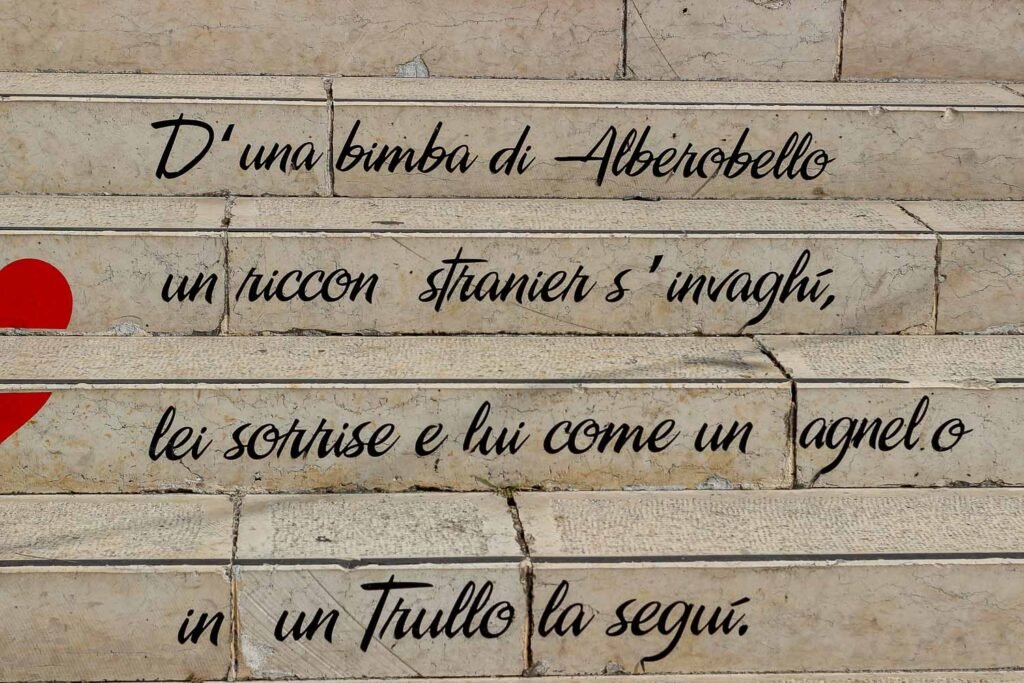 D'una bimba di Alberobello
un riccon stranier s'invaghí,
lei sorrise e lui come un agnel.o
in un Trullo la seguí.